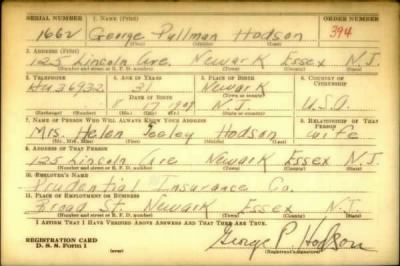 SERIAL NUMBER 1. NAME (Print) ORDER NUMBER
1662 George Pullman Hodson 394
(First) (Middle) (Last)
2. ADDRESS (Print)
125 Lincoln Ave. Newark Essex N.J.
(Number and street or R. F. D. number) (Town) (County) (State)
3. TELEPHONE 4. AGE IN YEARS 5. PLACE OF BIRTH 6. COUNTRY OF CITIZENSHIP
Hu 36932 31 Newark
DATE OF BIRTH (Town or county)
8 17 1909 N.J. U.S.A.
(Exchange) (Number) (Mo.) (Day) (Yr.) (State or country)
7. NAME OF PERSON WHO WILL ALWAYS KNOW YOUR ADDRESS 8. RELATIONSHIP OF THAT PERSON
Mrs. Helen Hodson Wife
(Mr., Mrs., Miss) (First) (Middle) (Last)
9. ADDRESS OF THAT PERSON
125 Lincoln Ave Newark Essex N.J.
(Number and street or R. F. D. number) (Town) (County) (State)
10. EMPLOYER'S NAME
Prudential Insurance Co.
11. PLACE OF EMPLOYMENT OR BUSINESS
Broad St. Newark Essex N.J.
(Number and street or R. F. D. number) (Town) (County) (State)
I AFFIRM THAT I HAVE VERIFIED ABOVE ANSWERS AND THAT THEY ARE TRUE.
REGISTRATION CARD
D. S. S. Form 1 George P. Hodson
(over) (Registrant's signature)